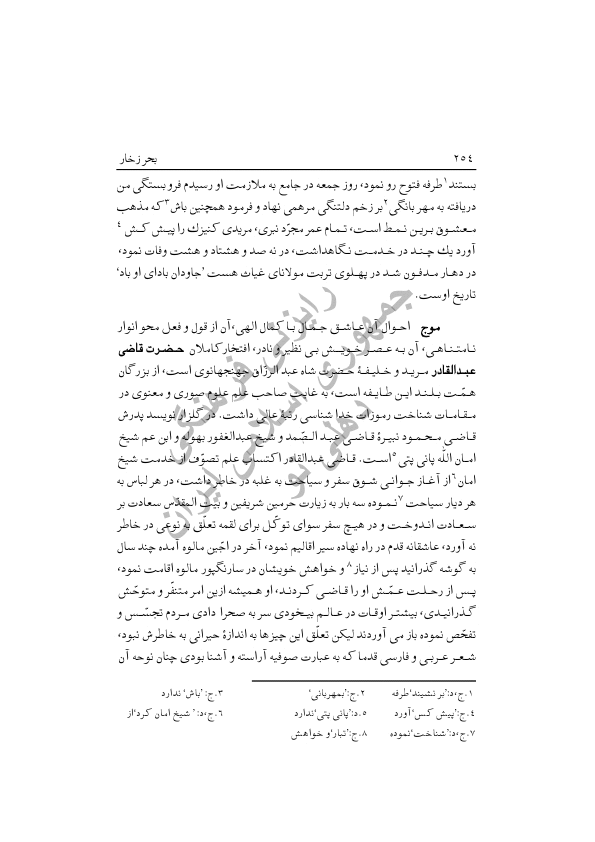 ٢٥٤ بحر زخار
بستند١ طرفه فتوح رو نمود، روز جمعه در جامع به ملازمت او رسیدم فرو بستگی من
دریافته به مهر بانگی٢ بر زخم دلتنگی مرهمی نهاد و فرمود همچنین باش٣ که مذهب
معشوق برین نمط است، تمام عمر مجرّد نبری، مریدی کنیزك را پیش کش ٤
آورد یك چند در خدمت نگاهداشت، در نه صد و هشتاد و هشت وفات نمود،
در دهار مدفون شد در پهلوی تربت مولانای غیاث هست ’جاودان بادای او باد‘
تاریخ اوست.
موج احوال آن عاشق جمال با کمال الهی، آن از قول و فعل محو انوار
نامتناهی، آن به عصر خویش بی نظیر و نادر، افتخار کاملان حضرت قاضی
عبدالقادر مرید و خلیفهٔ حضرت شاه عبد الرزّاق جهنجهانوی است، از بزرگان
همّت بلند این طایفه است، به غایت صاحب علم علوم صوری و معنوی در
مقامات شناخت رموزات خدا شناسی رتبهٔ عالی داشت. در گلزار نویسد پدرش
قاضی محمود نبیرهٔ قاضی عبد الصّمد و شیخ عبدالغفور بهوله و ابن عم شیخ
امان اللّه پانی پتی٥ است. قاضی عبدالقادر اکتساب علم تصوّف از خدمت شیخ
امان٦ از آغاز جوانی شوق سفر و سیاحت به غلبه در خاطر داشت، در هر لباس به
هر دیار سیاحت٧ نموده سه بار به زیارت حرمین شریفین و بیت المقدّس سعادت بر
سعادت اندوخت و در هیچ سفر سوای توکّل برای لقمه تعلّق به نوعی در خاطر
نه آورد، عاشقانه قدم در راه نهاده سیر اقالیم نمود، آخر در اجّین مالوه آمده چند سال
به گوشه گذرانید پس از نیاز٨ و خواهش خویشان در سارنگپور مالوه اقامت نمود،
پس از رحلت عمّش او را قاضی کردند، او همیشه ازین امر متنفّر و متوحّش
گذرانیدی، بیشتر اوقات در عالم بیخودی سر به صحرا دادی مردم تجسّس و
تفحّص نموده باز می آوردند لیکن تعلّق این چیزها به اندازهٔ حیرانی به خاطرش نبود،
شعر عربی و فارسی قدما که به عبارت صوفیه آراسته و آشنا بودی چنان نوحه آن
١.ج،د:’بر نشیند‘ طرفه ٢.ج:’بمهربانی‘ ٣.ج:’باش‘ ندارد
٤.ج:’پیش کس‘ آورد ٥.د:’پانی پتی‘ ندارد ٦.ج،د:’ شیخ امان کرد‘ از
٧.ج،د:’شناخت‘ نموده ٨.ج:’تبار‘ و خواهش
رایزنی فرهنگی
جمهوری اسلامی ایران
دهلی نو